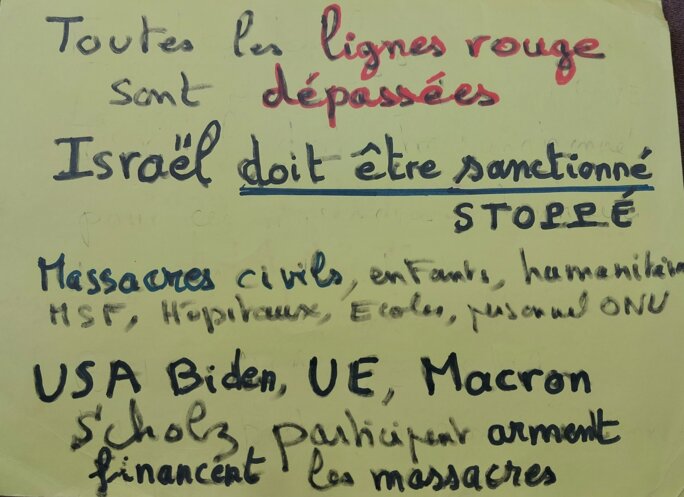 Toutes les lignes rouge
sont dépassées
Israël doit être sanctionné
STOPPÉ
Massacres civils, enfants, humanitaire
MSF, Hôpitaux, Ecoles, personnel ONU
USA Biden, UE, Macron
Scholz participent arment
financent les massacres